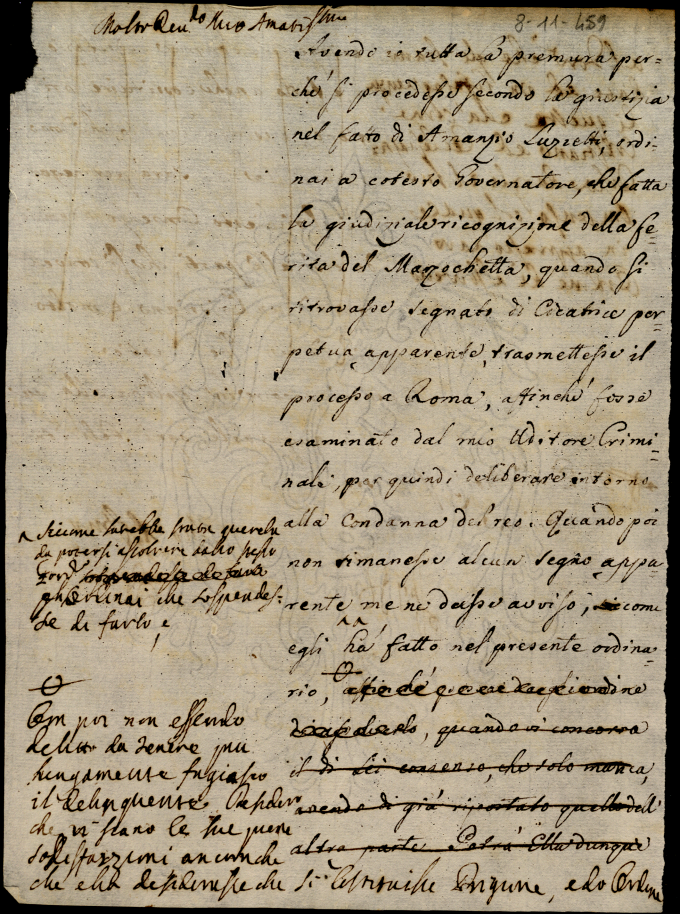 8-11-459
Molto Reu.do Mio Amatissimo
Avendo io tutta la premura per=
ché si procedesse secondo la giustizia
nel fato di Amanzio Luzietti, ordi=
nai a cotesto Governatore, che fatta
la giudiziale ricognizione della fe=
rita del Marzochetta, quando si
ritrovasse segnato di Cicatrice per=
petua apparente, trasmettesse il
processo a Roma, affinché fosse
esaminato dal mio Uditore Crimi=
nale, per quindi deliberare intorno
alla condanna del reo. Quando poi
non rimanesse alcun segno appa=
rente me ne dasse avviso, siccome
egli ha fatto nel presente ordina=
rio,
quando vi concorra
il di lei consenso, che solo manca,
avendo di già riportato quello dell'
altra parte. Potrà Ella dunque
siccome sarebbe
da potersi assolvere dallo stesso
che sospendes=
se di farlo, e
poi non essendo
delitto da tenere più
lungamente fugiasco
il Delinquente.
che vi siano le sue
sodisfazzioni ancorche
che ella desiderasse che si costituisse Prigione, e do Ordine